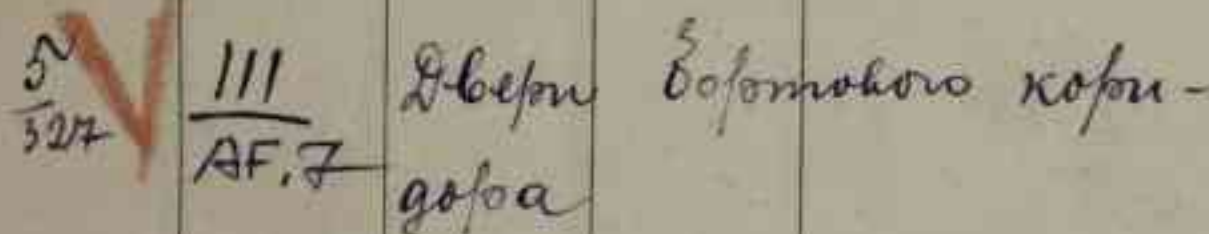 5/327 V III/AF.7 Двери бортового кори-
дора